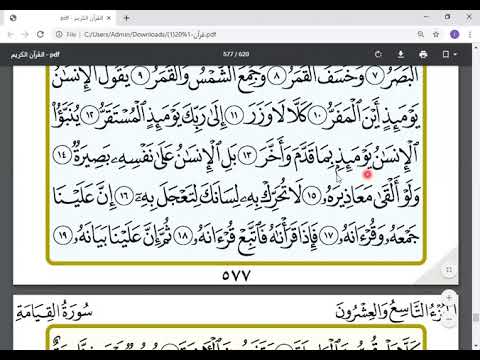 القرآن الكريم - pdf
C:/Users/Admin/Downloads/(1)20%1-قرآن.pdf
القرآن الكريم - pdf
577 / 620
ٱلۡبَصَرُ ٧ وَخَسَفَ ٱلۡقَمَرُ ٨ وَجُمِعَ ٱلشَّمۡسُ وَٱلۡقَمَرُ ٩ يَقُولُ ٱلۡإِنسَٰنُ
يَوۡمَئِذٍ أَيۡنَ ٱلۡمَفَرُّ ١٠ كَلَّا لَا وَزَرَ ١١ إِلَىٰ رَبِّكَ يَوۡمَئِذٍ ٱلۡمُسۡتَقَرُّ ١٢ يُنَبَّؤُاْ
ٱلۡإِنسَٰنُ يَوۡمَئِذِۭ بِمَا قَدَّمَ وَأَخَّرَ ١٣ بَلِ ٱلۡإِنسَٰنُ عَلَىٰ نَفۡسِهِۦ بَصِيرَةٞ ١٤
وَلَوۡ أَلۡقَىٰ مَعَاذِيرَهُۥ ١٥ لَا تُحَرِّكۡ بِهِۦ لِسَانَكَ لِتَعۡجَلَ بِهِۦٓ ١٦ إِنَّ عَلَيۡنَا
جَمۡعَهُۥ وَقُرۡءَانَهُۥ ١٧ فَإِذَا قَرَأۡنَٰهُ فَٱتَّبِعۡ قُرۡءَانَهُۥ ١٨ ثُمَّ إِنَّ عَلَيۡنَا بَيَانَهُۥ ١٩
٥٧٧
ٱلتَّاسِعُ وَٱلۡعِشۡرُونَ
سُورَةُ ٱلۡقِيَامَةِ